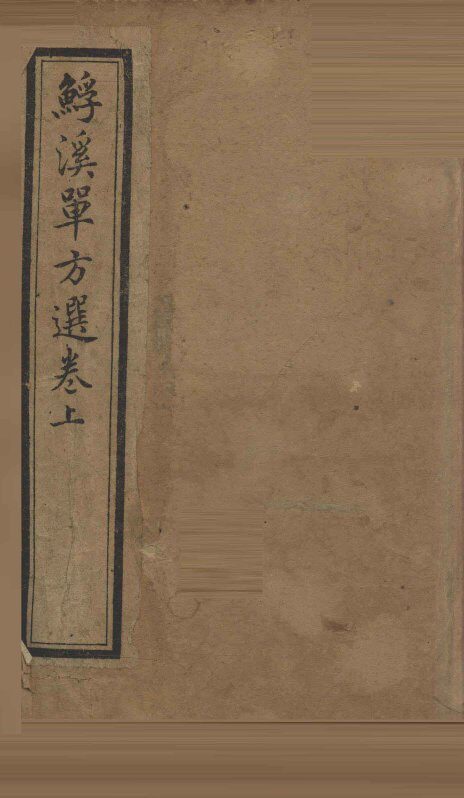 鰟溪單方選卷上